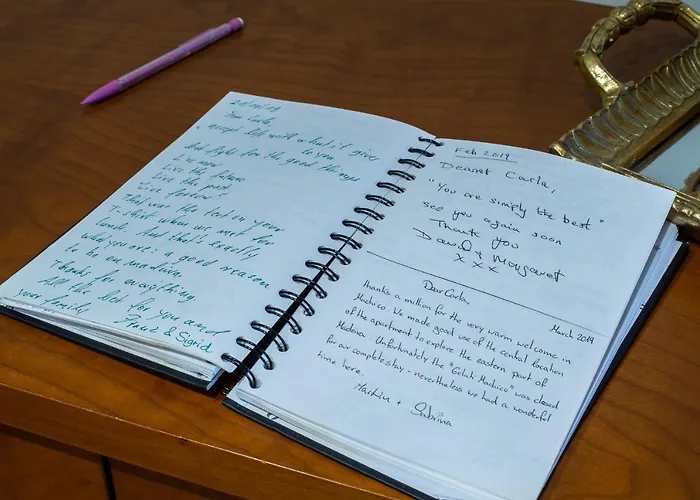 Dear Carla,
accept life with what it gives
to you
And fight for the good things
Live now
Live the future
Live the past
Live forever!
That was the text on your
T-shirt when we met for
lunch. And that's exactly
what you are: a good reason
to be on madeira.
Thanks for everything
All the best for you and
your family
Paul & Sigrid
Feb 2019
Dearest Carla,
"You are simply the best"
see you again soon
Thank you
David & Margaret
x x x
Dear Carla,
March 2019
thanks a million for the very warm welcome in
Machico. We made good use of the central location
of the apartment to explore the eastern part of
Madeira. Unfortunately the "Gelati Machico" was closed
for our complete stay - nevertheless we had a wonderful
time here.
Martin + Sabrina